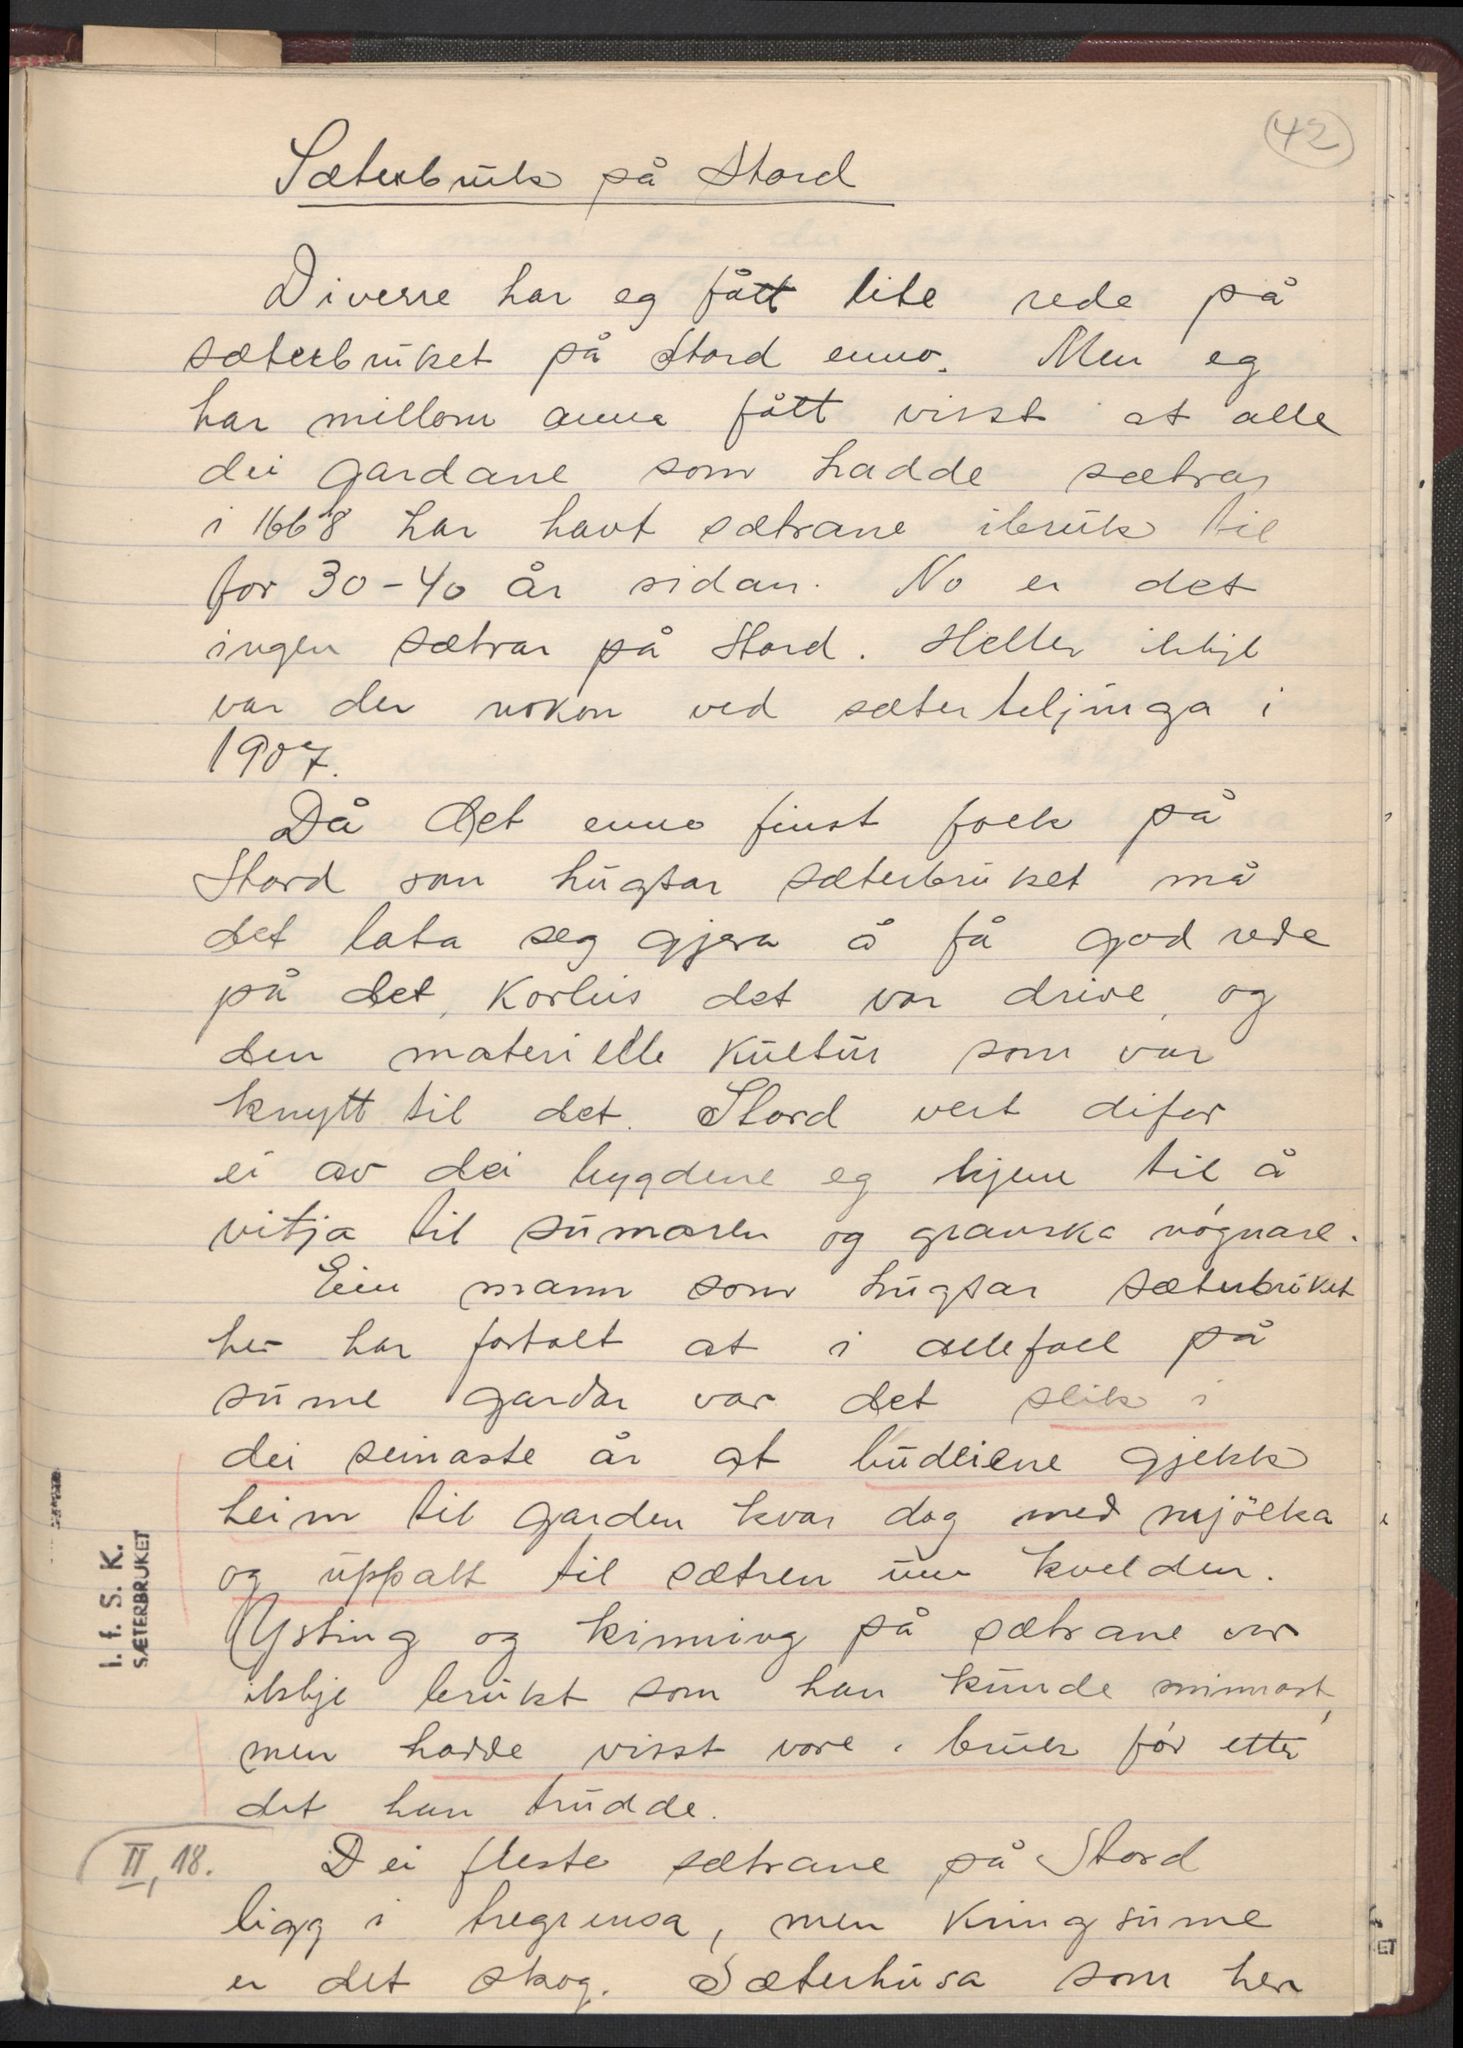 42
Sæterbruk på Stord
Diverre har eg fått lite rede på
sæterbruket på Stord enno. Men eg
har millom anna fått visst at alle
dei gardane som hadde sætrar
i 1668 har havt sætrane ibruk til
for 30-40 år sidan. No er det
ingen sætrar på Stord. Heller ikkje
var der nokon ved sæterteljinga i
1907.
Då det enno finst folk på
Stord som hugsar sæterbruket må
det lata seg gjera å få god rede
på det, korleis det var drive, og
den materielle kultur som var
knytt til det. Stord vert difor
ei av dei bygdene eg kjem til å
vitja til sumaren og granska nøgnare.
Ein mann som hugsar sæterbruket
her har fortalt at i allefall på
sume gardar var det slik i
dei seinaste år at budeiene gjekk
heim til garden kvar dag med mjölka
og uppatt til sætren um kvelden.
Ysting og kinning på sætrane var
ikkje brukt som han kunde minnast,
men hadde visst vore i bruk før etter
det han trudde.
II, 18. Dei fleste sætrane på Stord
ligg i tregrensa, men kring sume
er det skog. Sæterhusa som her
I. f. S. K.
SÆTERBRUKET
ET